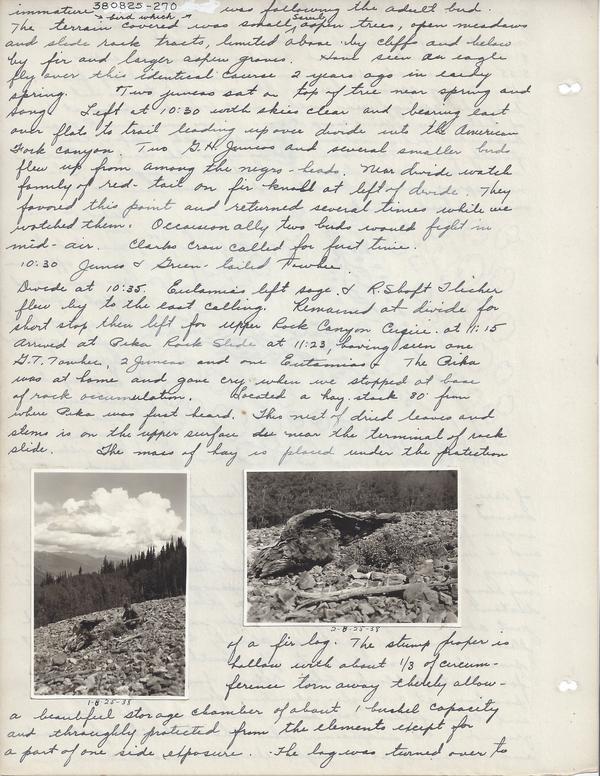 immature 380825-270 was following the adult bird.
bird which Seral
The terrain covered was small, aspen trees, open meadows
and slide rock tracts, limited above by cliffs and below
by fir and larger aspen groves. Have seen an eagle
fly over this identical course 2 years ago in early
spring. Two juncos sat on top of tree near spring and
song. Left at 10:30 with skies clear and bearing east
over flats to trail leading up over divide into the American
Fork Canyon. Two G.H. Juncos and several smaller birds
flew up from among the negro-heads. Near divide watch
family of red-tail on fir knoll at left of divide. They
favored this point and returned several times while we
watched them. Occasionally two birds would fight in
mid-air. Clarks crow called for first time.
10:30 Junco & Green-tailed Towhee.
Divide at 10:35. Eutamias left sage & R. Shaft Flicker
flew by to the east calling. Remained at divide for
short stop then left for upper Rock Canyon at 11:15
Arrived at Pika Rock Slide at 11:23, having seen one
G.T. Towhee, 2 Juncos and one Eutamias. The Pika
was at home and gave cry when we stopped at base
of rock accumulation. Located a hay stack 80' from
where Pika was first heard. This nest of dried leaves and
stems is on the upper surface near the terminal of rock
slide. The mass of hay is placed under the protection
1-8-25-38
2-8-25-38
of a fir log. The stump proper is
hollow with about 1/3 of circum-
ference torn away thereby allow-
a beautiful storage chamber of about 1 bushel capacity
and throughly protected from the elements except for
a part of one side exposure. The log was turned over to